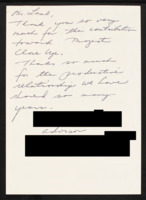 Mr. Lord,
Thank you so very
much for the contribution
toward Project
Close Up.
Thanks so much
for the productive
relationship we have
shared so many
years.
Advisor